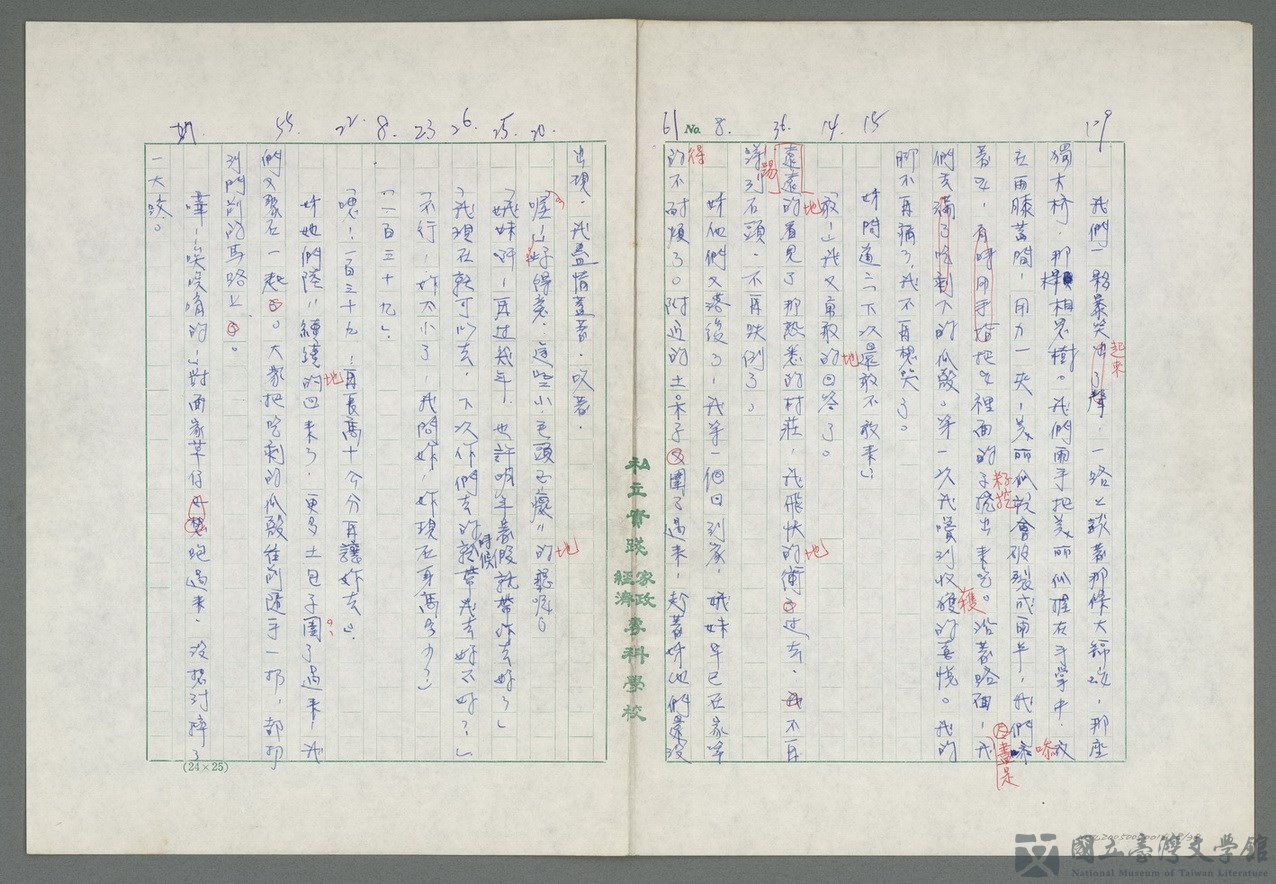 129
我們一夥暴笑出了聲，一路上談著那條大辮蛇，那座
起來
獨木橋，那棵相思樹。我們兩手把美麗瓜握在手掌中，放
在兩膝蓋間，用力一夾，美麗瓜就會破裂成兩半，我們
著吃，有時用手指把瓜裡面的子挖出來吃。沿著路面，
籽挖
盡是
們丟滿了吃剩下的瓜殼。第一次我嚐到收穫的喜悅。我的
獲
腳不再痛了，我不再想哭了。
15
姊問道：「下次還敢不敢來」
14.
「敢！」我又勇敢的回答了。
地
36.
遠遠的看見了那熟悉的村莊，我飛快的衝過去，不再
地
地
踢到石頭，不再跌倒了。
踢
8.
姊他們又落後了，我第一個回到家，娥妹早已在家等
No.
61
的不耐煩了。附近的土包子圍了過來，趁著姊他們還沒
得
出現，我盡情蓋著，吹著。
20.
「喔！」好得意，這些小毛頭正癡癡的聽呢。
地
25.
「娥妹啊！再過幾年，也許明年暑假就帶你去好了」
26.
「我現在就可以去，下次你們去的時候就帶我去好不好？」
23
「不行！妳太小了，我問妳，妳現在身高多少？」
8.
「一百三十九」。
22.
「嗯！一百三十九，再長高十公分再讓妳去」。
姊她們陸陸續續的回來了，更多土包子圍了過來，我
地
55.
們又聚在一起。大家把吃剩的瓜殼往前隨手一扔，都扔
到門前的馬路上。
嘩！唉唉唷的！對面家草仔跑過來，沒想到摔了
一大跤。
(24×25)
私立實踐家政經濟專科學校
國立臺灣文學館
National Museum of Taiwan Literature